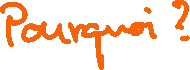 Pourquoi ?